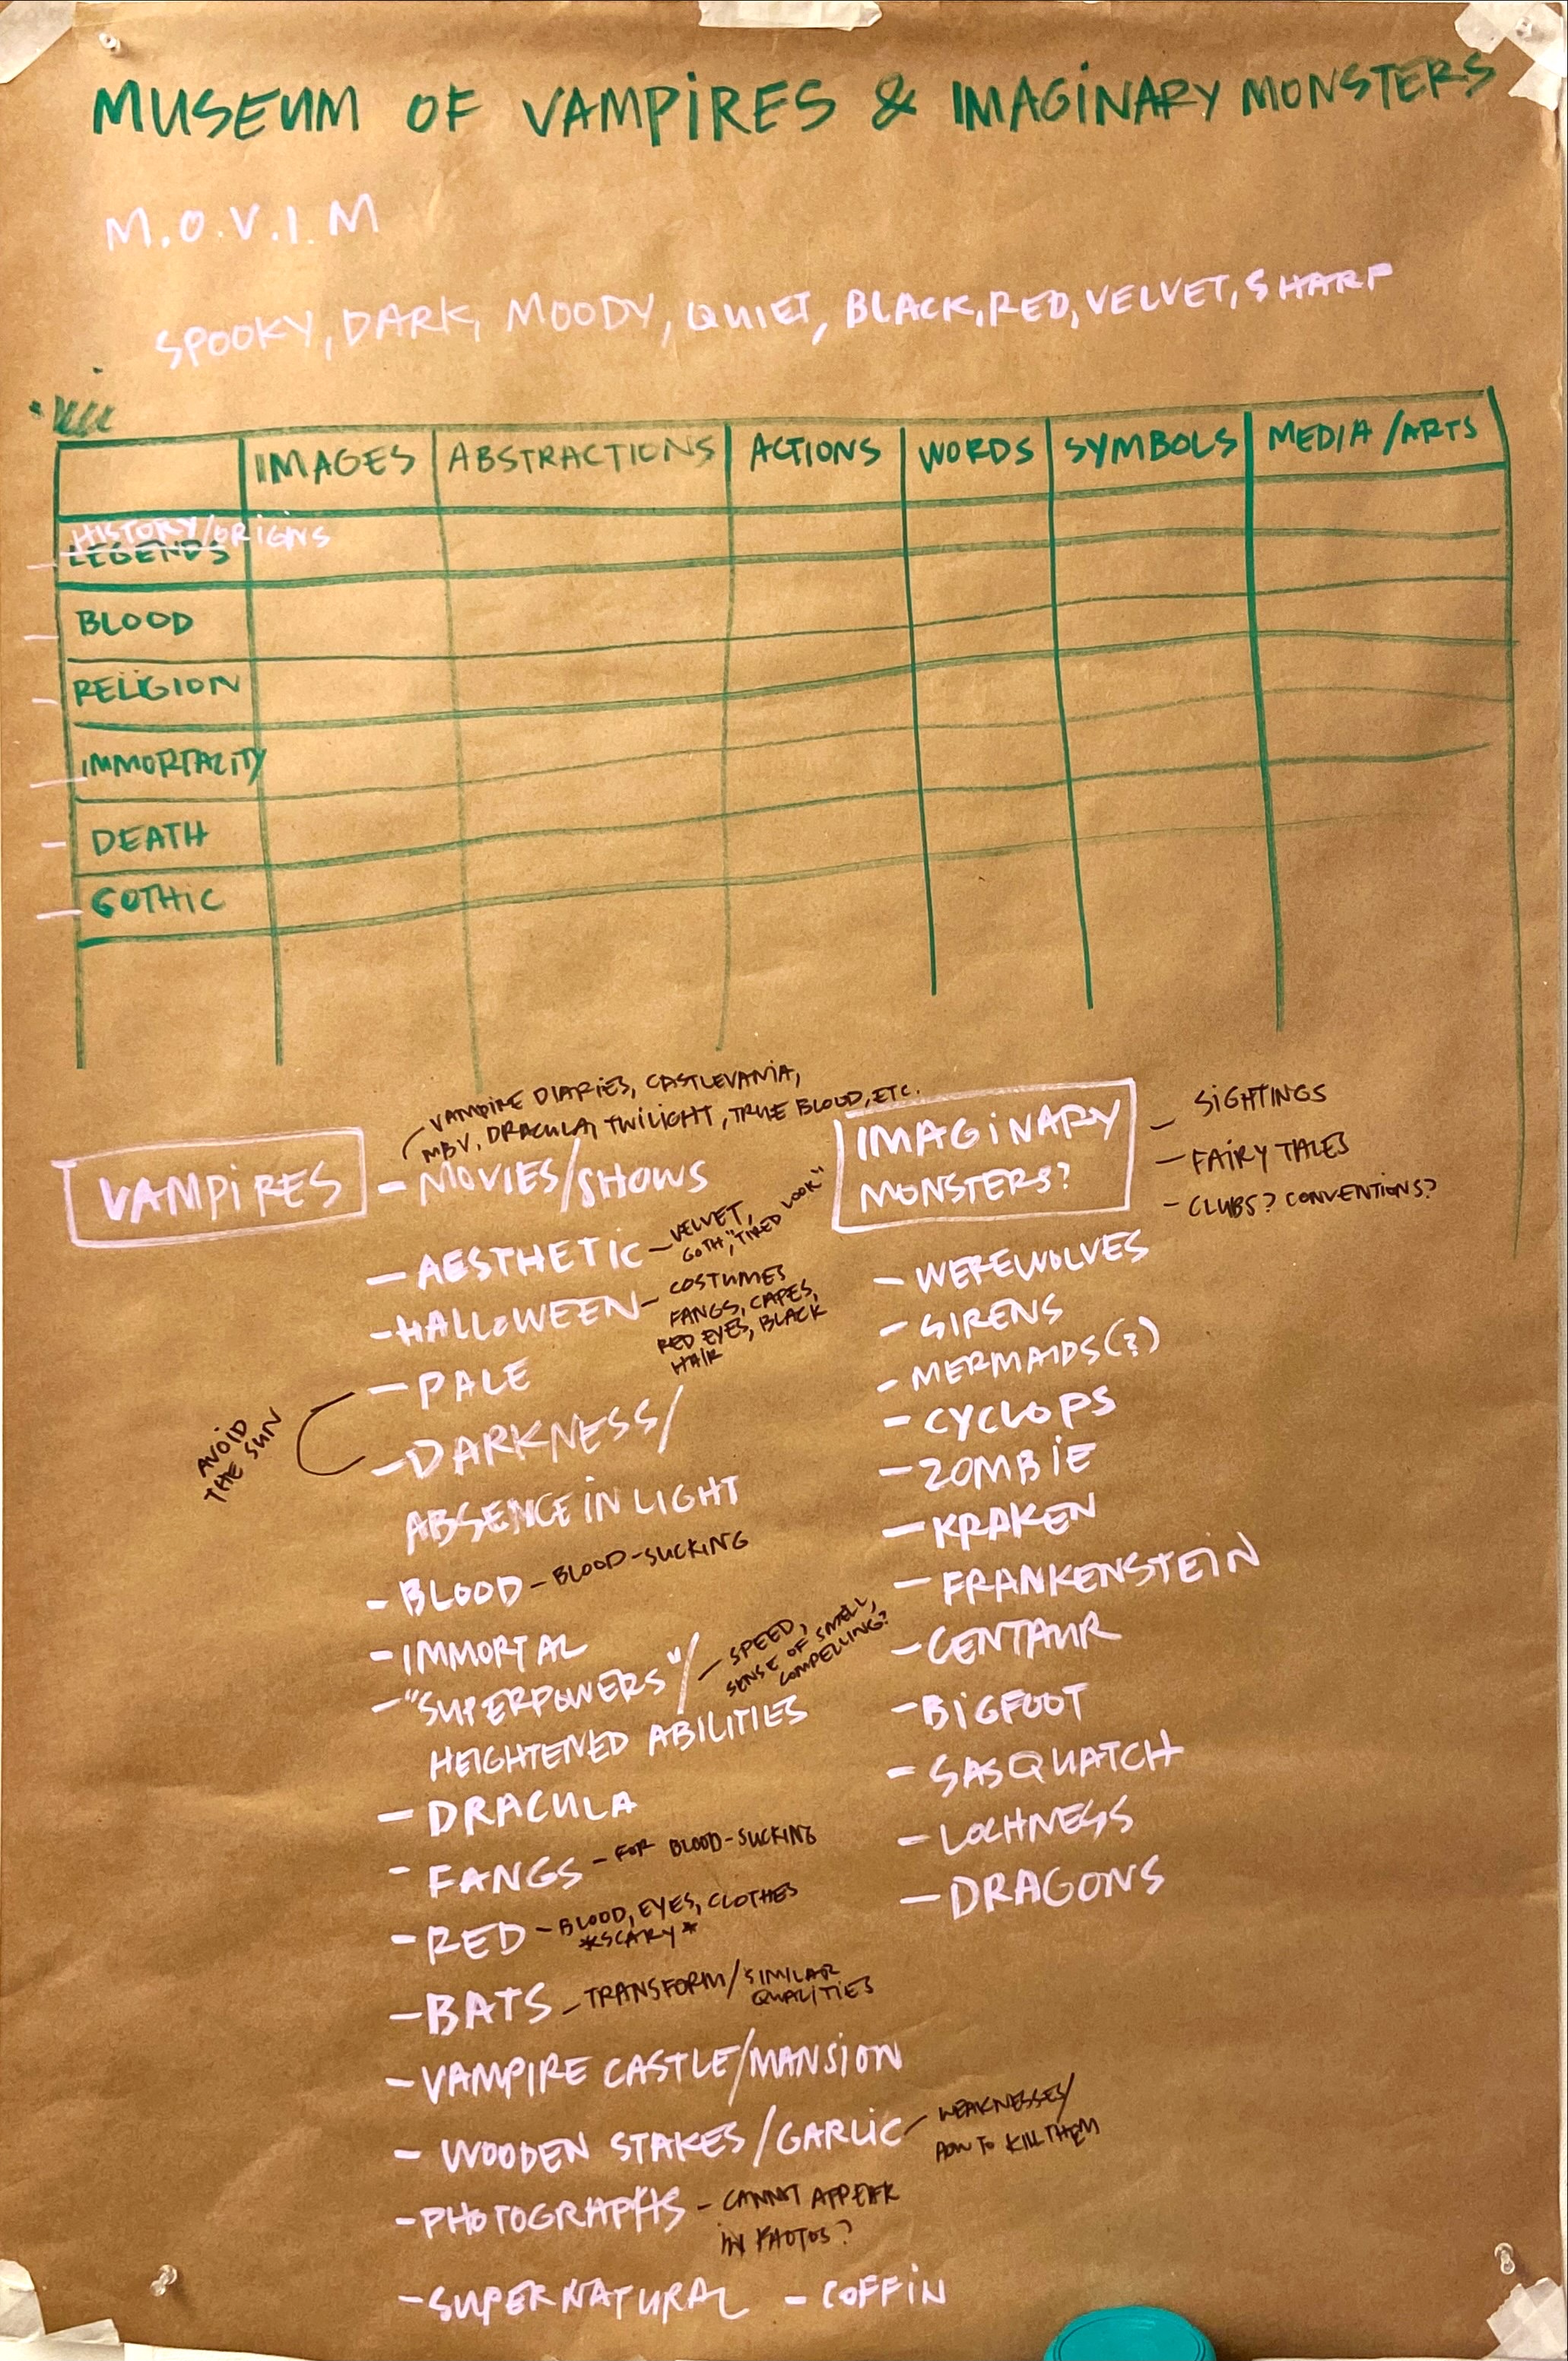 MUSEUM OF VAMPIRES & IMAGINARY MONSTERS
M.O.V.I.M
SPOOKY, DARK, MOODY, QUIET, BLACK, RED, VELVET, SHARP
IMAGES ABSTRACTIONS ACTIONS WORDS SYMBOLS MEDIA/ARTS
HISTORY/ORIGINS
LEGENDS
BLOOD
RELIGION
IMMORTALITY
DEATH
GOTHIC
VAMPIRES
VAMPIRE DIARIES, CASTLEVANIA,
MBV, DRACULA, TWILIGHT, TRUE BLOOD, ETC.
- MOVIES/SHOWS
- AESTHETIC - VELVET,
GOTH, "TIRED LOOK"
- HALLOWEEN - COSTUMES
FANGS, CAPES,
RED EYES, BLACK
HAIR
- PALE
- DARKNESS/
ABSENCE IN LIGHT
AVOID
THE SUN
- BLOOD - BLOOD-SUCKING
- IMMORTAL
- "SUPERPOWERS"/
HEIGHTENED ABILITIES
- SPEED,
SENSE OF SMELL,
COMPELLING?
- DRACULA
- FANGS - FOR BLOOD-SUCKING
- RED - BLOOD, EYES, CLOTHES
*SCARY*
- BATS - TRANSFORM/SIMILAR
QUALITIES
- VAMPIRE CASTLE/MANSION
- WOODEN STAKES/GARLIC - WEAKNESSES/
HOW TO KILL THEM
- PHOTOGRAPHS - CANNOT APPEAR
IN PHOTOS?
- SUPERNATURAL - COFFIN
IMAGINARY
MONSTERS?
- SIGHTINGS
- FAIRY TALES
- CLUBS? CONVENTIONS?
- WEREWOLVES
- SIRENS
- MERMAIDS(?)
- CYCLOPS
- ZOMBIE
- KRAKEN
- FRANKENSTEIN
- CENTAUR
- BIGFOOT
- SASQUATCH
- LOCHNESS
- DRAGONS